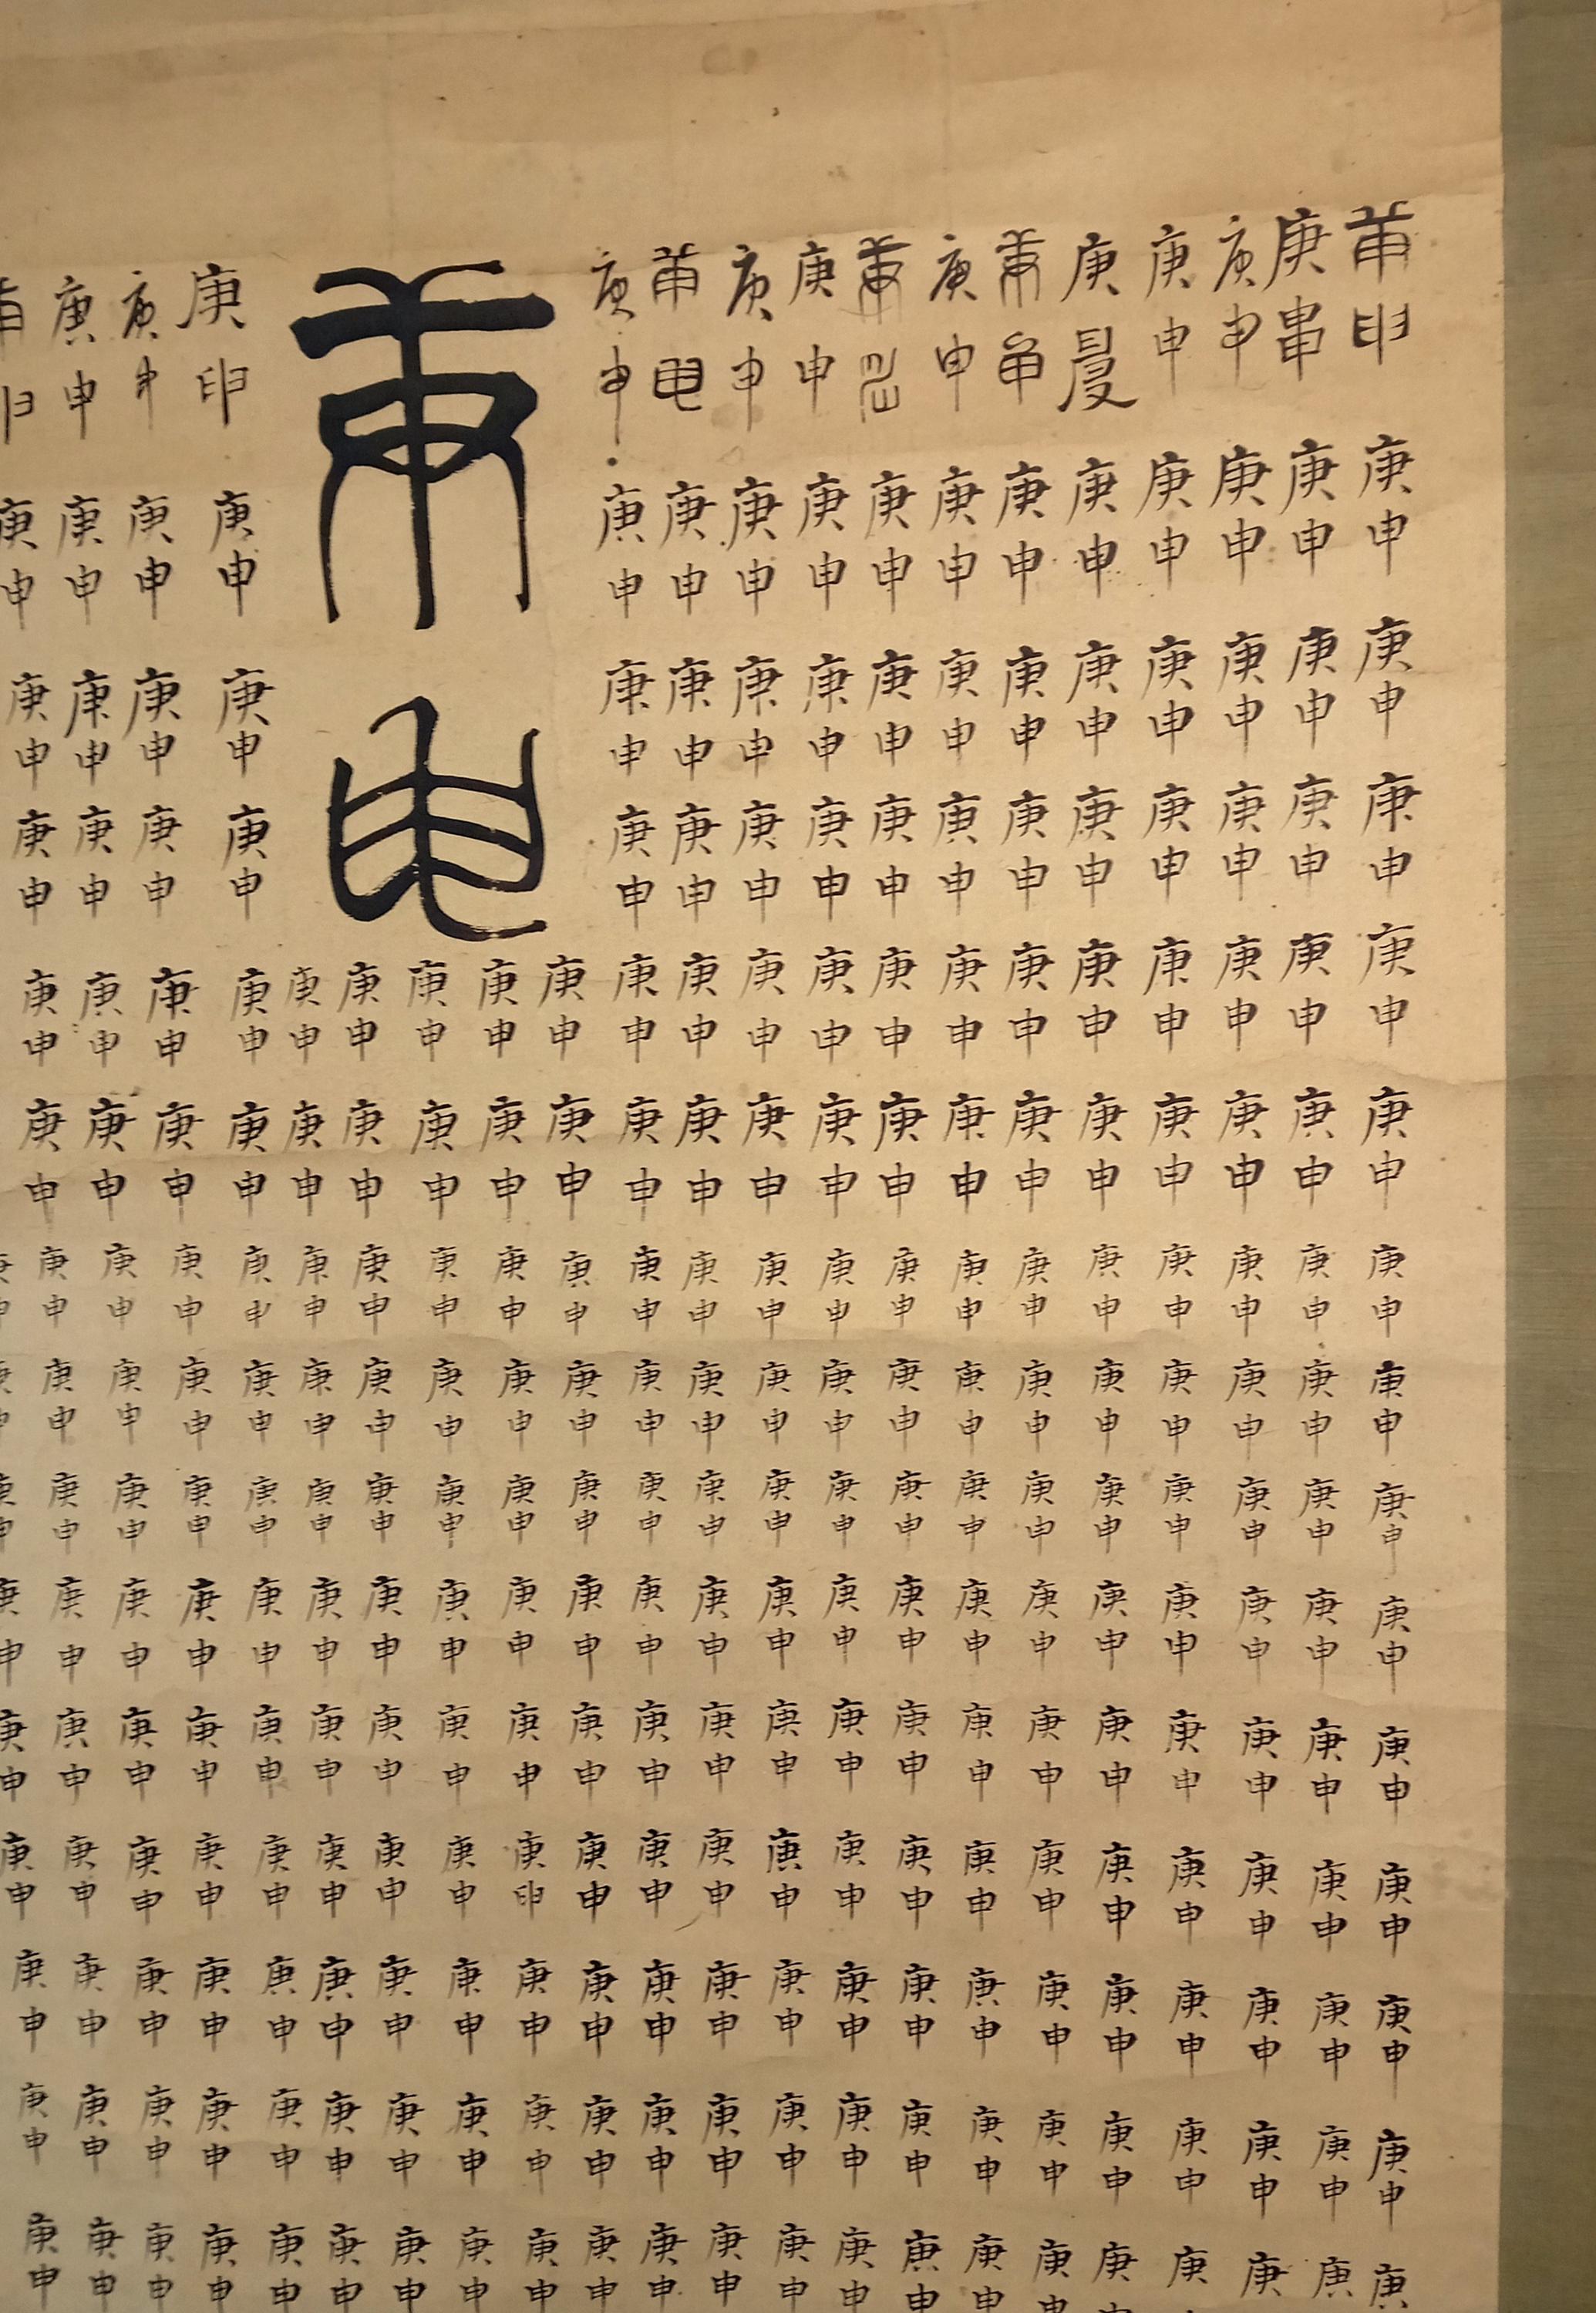 庚申庚申庚申庚申庚申庚申庚申庚申庚申庚申庚申庚申庚申庚申庚
庚申庚申庚申庚申庚申庚申庚申庚申庚申庚申庚申庚申庚申庚申庚
庚申庚申庚申庚申庚申庚申庚申庚申庚申庚申庚申庚申庚申庚申庚
庚申庚申庚申庚申庚申庚申庚申庚申庚申庚申庚申庚申庚申庚申庚
庚申庚申庚申庚申庚申庚申庚申庚申庚申庚申庚申庚申庚申庚申庚
庚申庚申庚申庚申庚申庚申庚申庚申庚申庚申庚申庚申庚申庚申庚申
庚申庚申庚申庚申庚申庚申庚申庚申庚申庚申庚申庚申庚申庚申庚申
庚申庚申庚申庚申庚申庚申庚申庚申庚申庚申庚申庚申庚申庚申庚申
庚申庚申庚申庚申庚申庚申庚申庚申庚申庚申庚申庚申庚申庚申庚申
庚申庚申庚申庚申庚申庚申庚申庚申庚申庚申庚申庚申庚申庚申庚申
庚申庚申庚申庚申庚申庚申庚申庚申庚申庚申庚申庚申庚申庚申庚申
庚申庚申庚申庚申庚申庚申庚申庚申庚申庚申庚申庚申庚申庚申庚申
庚申
庚申庚申庚申庚申庚申庚申庚申庚申庚申庚申庚申
庚申庚申庚申庚申庚申庚申庚申庚申庚申庚申庚申
庚申庚申庚申庚申庚申庚申庚申庚申庚申庚申庚申
庚申庚申庚申庚申庚申庚申庚申庚申庚申庚申庚申
庚申庚申庚申庚申庚申庚申庚申庚申庚申庚申庚申
庚申庚申庚申庚申庚申庚申庚申庚申庚申庚申庚申庚申庚申庚申庚申
庚申庚申庚申庚申庚申庚申庚申庚申庚申庚申庚申庚申庚申庚申庚申
庚申庚申庚申庚申庚申庚申庚申庚申庚申庚申庚申庚申庚申庚申庚申
庚申庚申庚申庚申庚申庚申庚申庚申庚申庚申庚申庚申庚申庚申
庚申庚申庚申庚申庚申